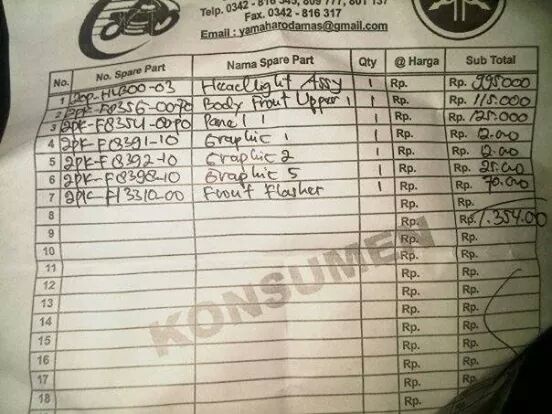 Telp. 0342 - 816 345, 809 777, 801 137
Fax. 0342 - 816 317
Email : yamaharodamas@gmail.com
No. No. Spare Part Nama Spare Part Qty @ Harga Sub Total
1 2pp-H4300-03 Headlight Assy 1 Rp. Rp. 995.000
2 2PK-F835G-00P0 Body Front Upper 1 Rp. Rp. 115.000
3 2PK-F8354-00P0 Panel 1 1 Rp. Rp. 125.000
4 2PK-F8391-10 Graphic 1 1 Rp. Rp. 12.000
5 2PK-F8392-10 Graphic 2 1 Rp. Rp. 12.000
6 2PK-F8398-10 Graphic 5 1 Rp. Rp. 25.000
7 2PK-H3310-00 Front Flasher 1 Rp. Rp. 70.000
8 Rp. Rp.
9 Rp. Rp. 1.354.00
10 Rp. Rp.
11 Rp. Rp.
12 Rp. Rp.
13 Rp. Rp.
14 Rp. Rp.
15 Rp. Rp.
16 Rp. Rp.
17 Rp. Rp.
18 Rp. Rp.
KONSUMEN